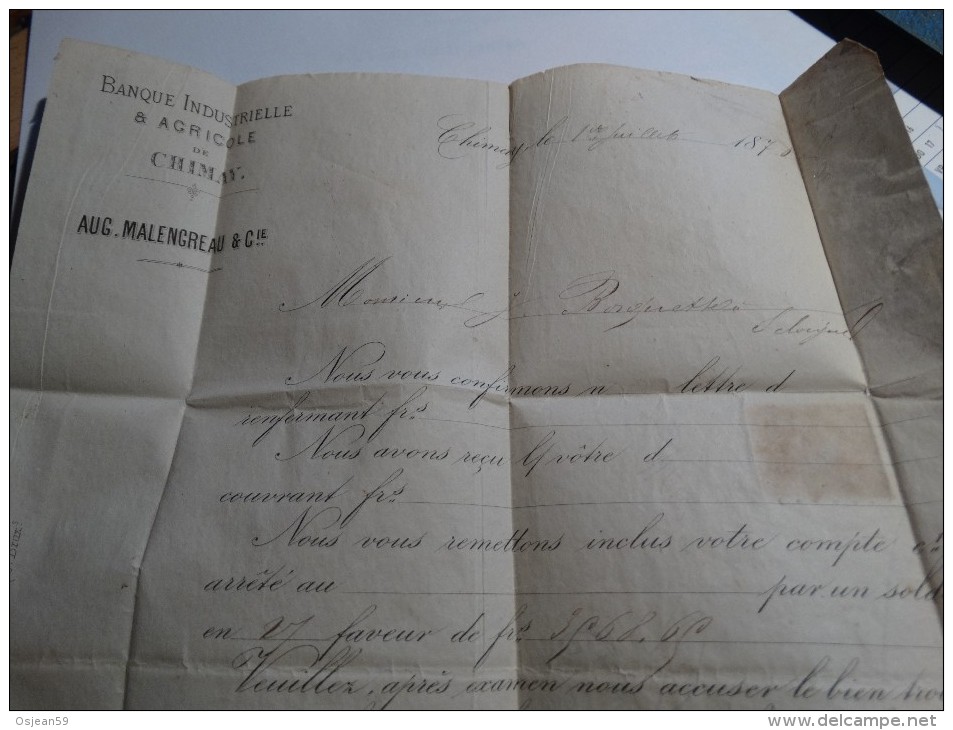 BANQUE INDUSTRIELLE
& AGRICOLE
DE
CHIMAY.
AUG. MALENGREAU & CIE
Chimay le 1er Juillet 187
Monsieur J.
Nous vous confirmons n lettre d
renfermant frs
Nous avons reçu l vôtre d
couvrant frs
Nous vous remettons inclus votre compte ct
arrêté au par un sold
en faveur de frs
Veuillez, après examen nous accuser le bien trou
Osjean59
www.delcampe.net